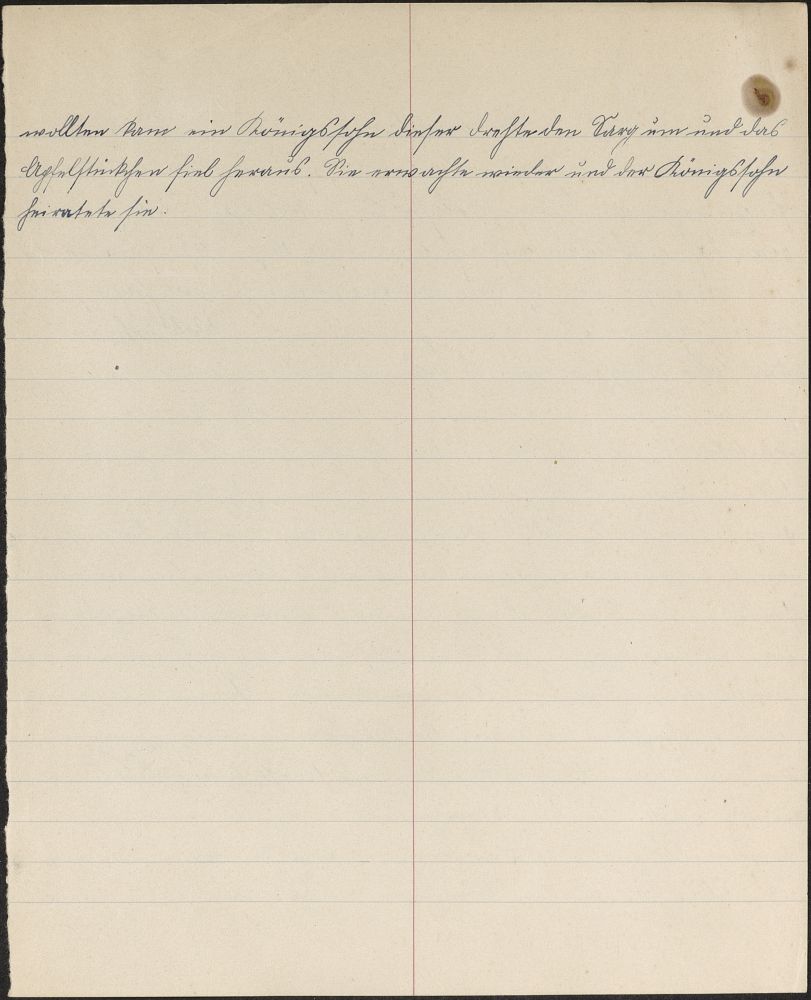 wollten kam ein Königssohn dieser drehte den Sarg um und das
Apfelstückchen fiel heraus. Sie erwachte wieder und der Königssohn
heiratete sie.